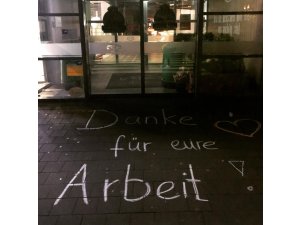 Danke
für eure
Arbeit!